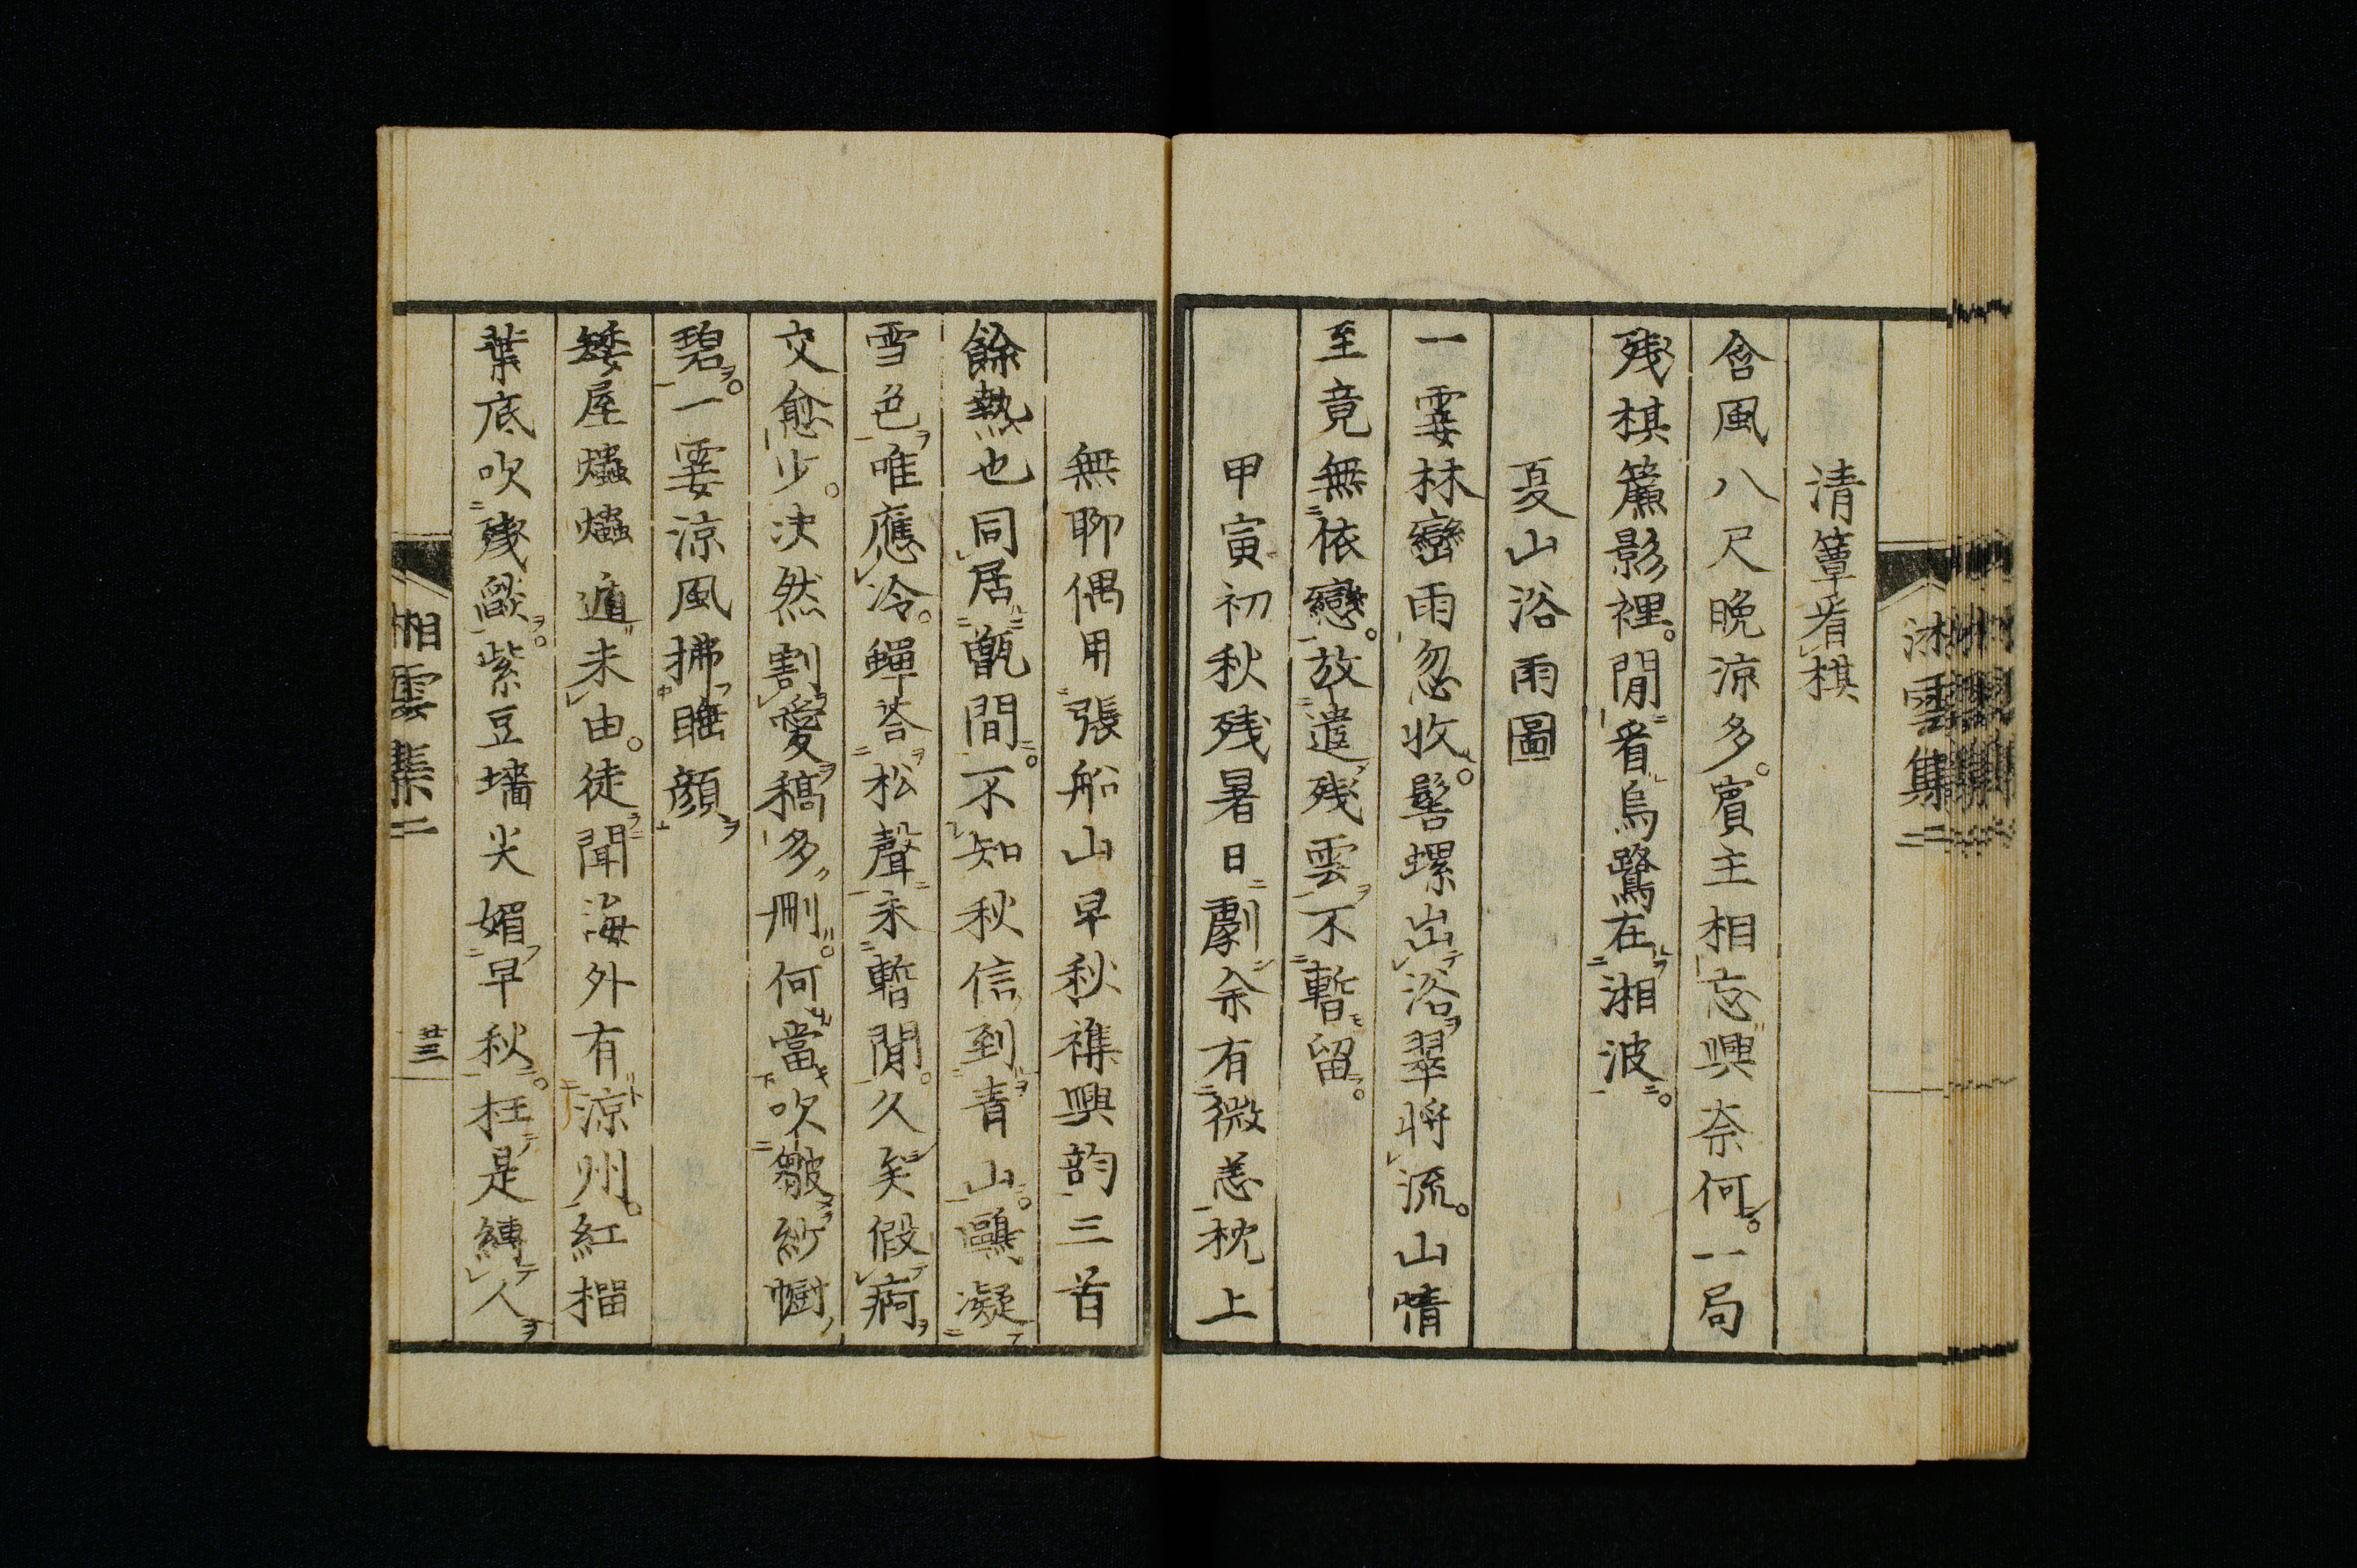 清簟看棋
含風八尺晚涼多。賓主相忘興奈何。一局
殘棋簾影裡。閒看烏鷺在湘波。
夏山浴雨圖
一霎林巒雨忽收。髻螺出浴翠將流。山情
至竟無依戀。放遣殘雲不暫留。
甲寅初秋殘暑日劇余有微恙枕上
無聊偶用張船山早秋襍興韵三首
餘熱也同居甑間。不知秋信到青山。鷗凝
雪色唯應冷。蟬答松聲未暫閒。久矣假痾
交愈少。決然割愛稿多刪。何當吹皺紗幮
碧。一霎涼風拂睡顏
矮屋爞爞遁未由。徒聞海外有涼州。紅榴
葉底吹殘燄。紫豆墻尖媚早秋。枉是縛人
湘雲集二
廿三